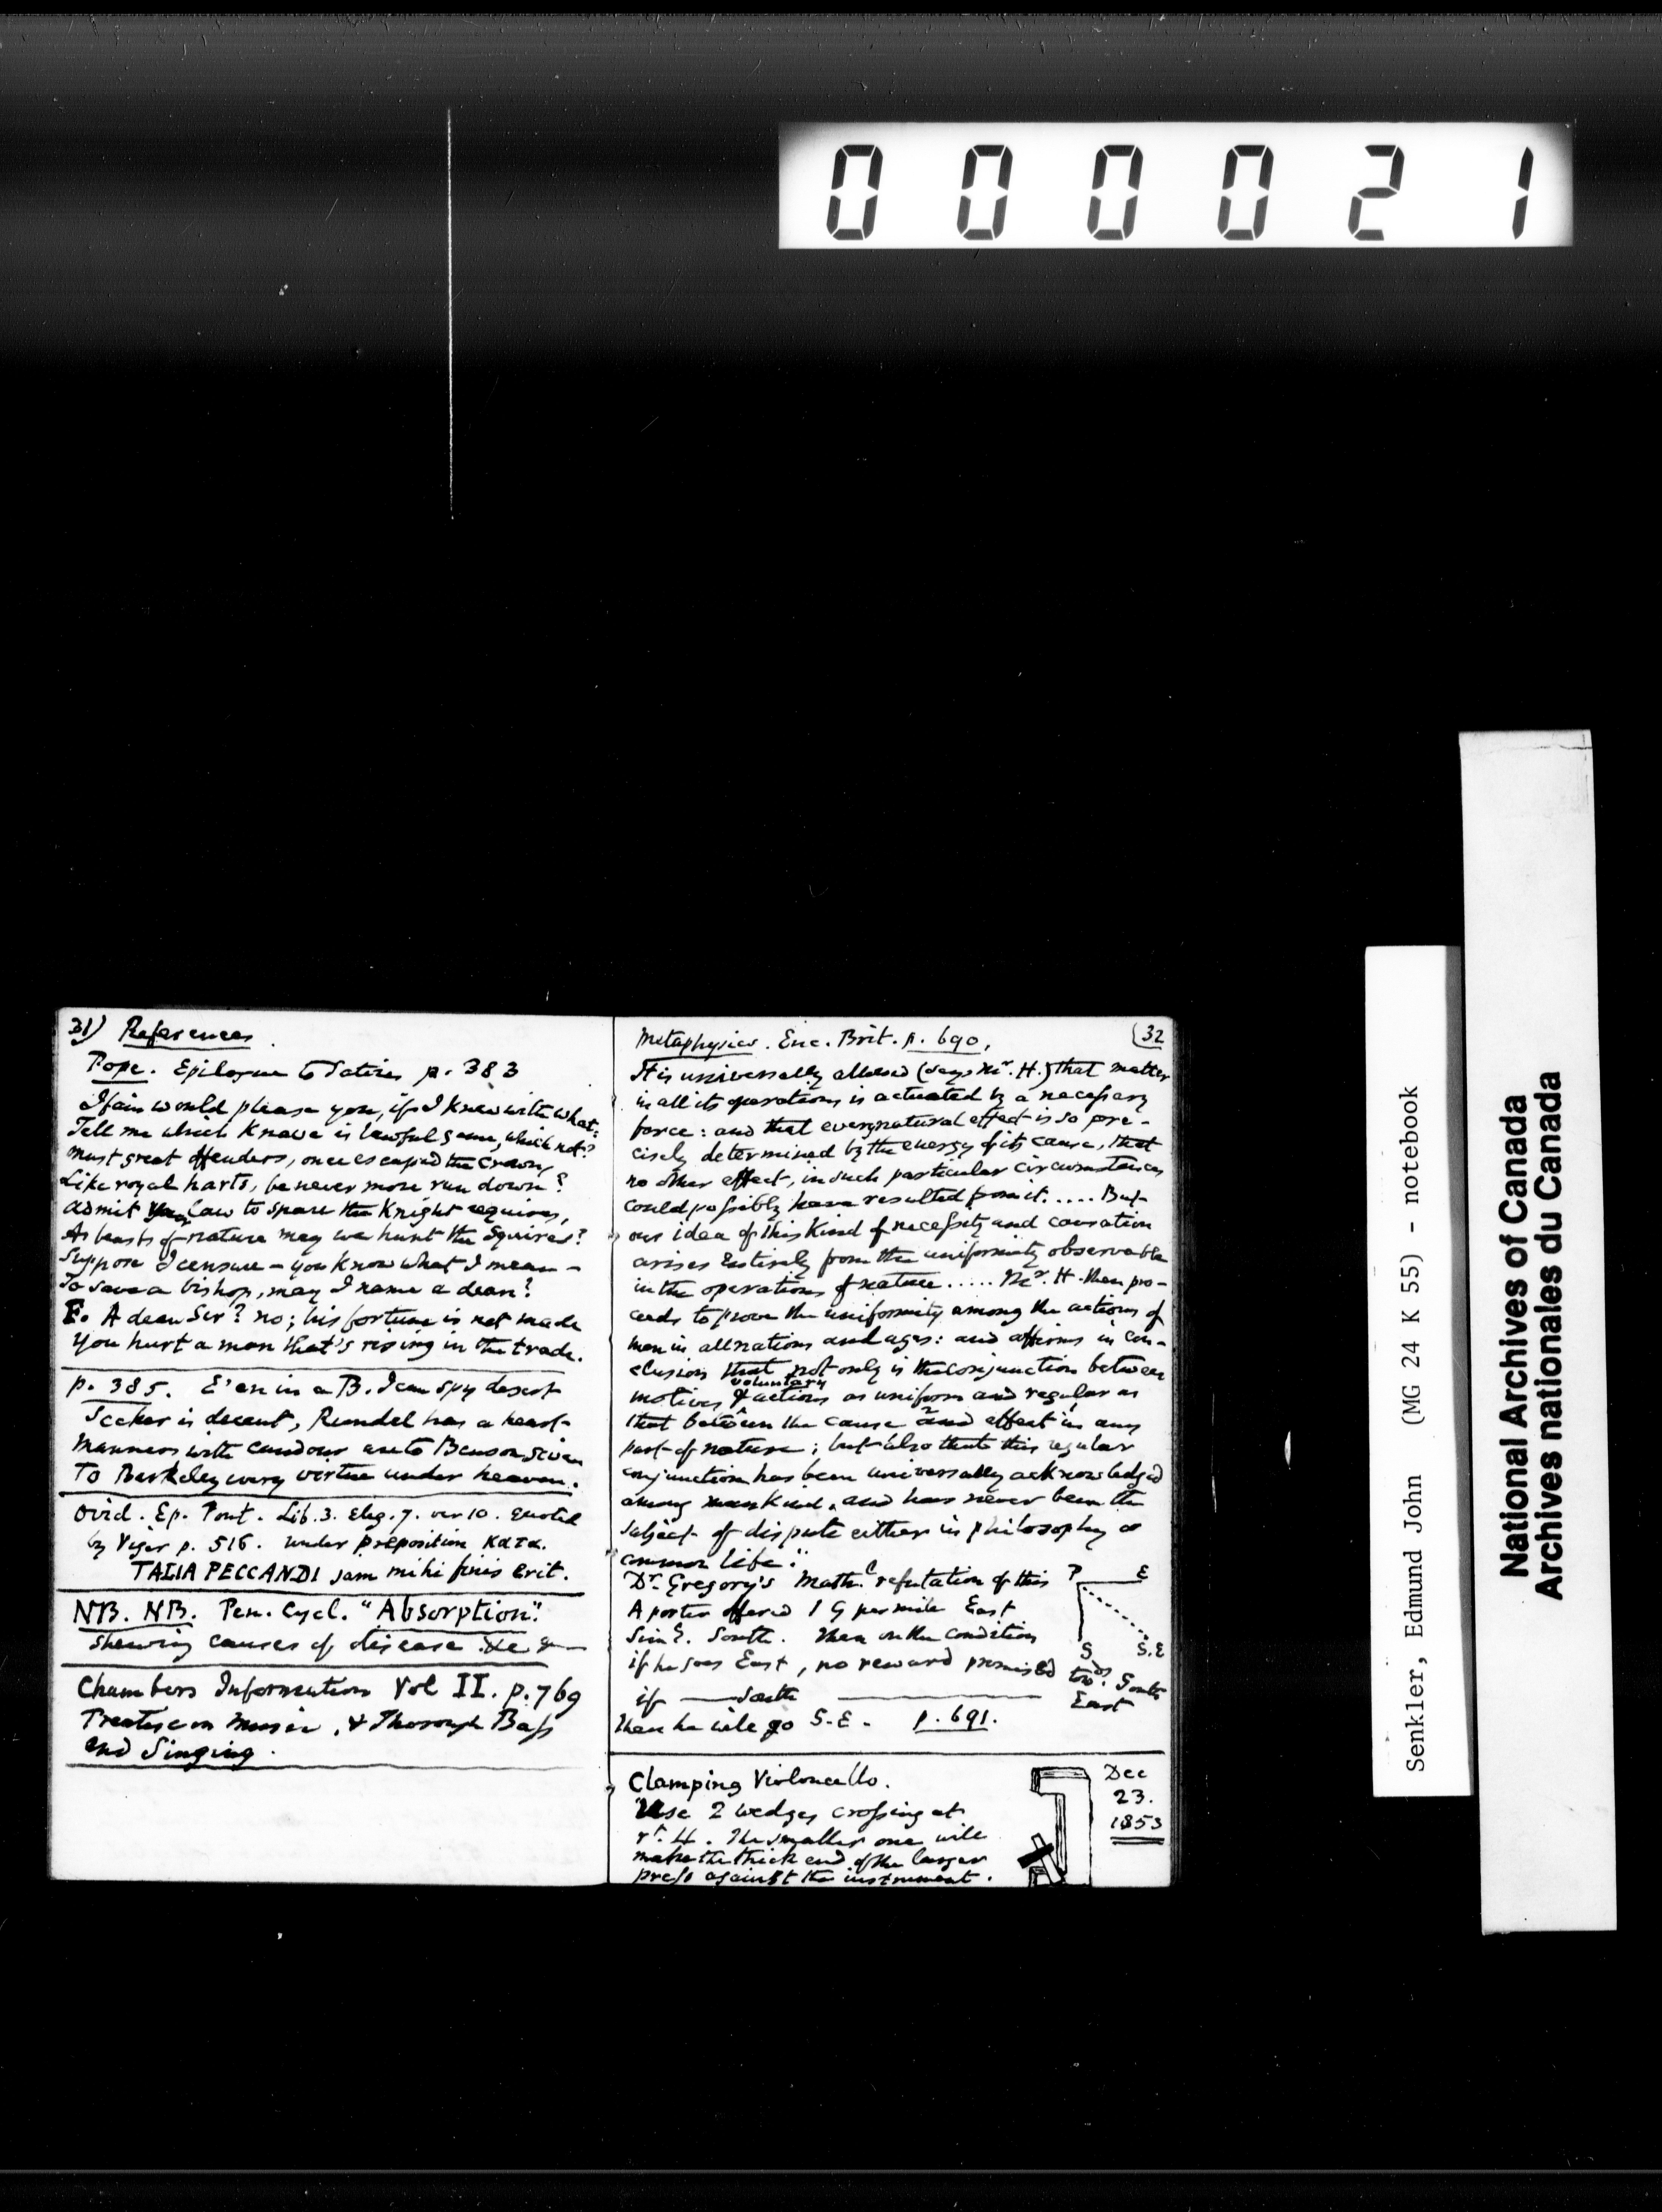 000021
31) References
Pope. Epilogue to Satires p. 383
I fain would please you, if I knew with what:
Tell me which Knave is lawful game, which not?
Must great offenders, once escaped the Crown,
Like royal harts, be never more run down?
Admit your law to spare the Knight requires,
As beasts of nature may we hunt the Squires?
Suppose I censure – you know what I mean –
To save a bishop, may I name a dean?
F. A dean Sir? no; his fortune is not made
You hurt a man that's rising in the trade.
p. 385. E'en in a B. I can spy desert
Secker is decent, Rundel has a heart
Manners with candour are to Benson given
To Berkeley every virtue under heaven.
Ovid. Ep. Pont. Lib. 3. Eleg. 7. ver 10. quoted
by Viger p. 516. under preposition κατα.
TALIA PECCANDI jam mihi finis erit.
NB. NB. Pen. Cycl. "Absorption".
shewing causes of disease &c &—
Chambers Information Vol II. p. 769
Treatise on Music, & Thorough Bass
and Singing.
(32
Metaphysics. Enc. Brit. p. 690.
It is universally allowed (says Mr. H.) that matter
in all its operations is actuated by a necessary
force: and that every natural effect is so pre-
cisely determined by the energy of its cause, that
no other effect, in such particular circumstances
could possibly have resulted from it..... But
our idea of this Kind of necessity and causation
arises entirely from the uniformity observable
in the operations of nature ..... Mr. H. then pro-
ceeds to prove the uniformity among the actions of
men in all nations and ages: and affirms in con-
clusion that not only is the conjunction between
motives & voluntary actions as uniform and regular as
that between the cause and effect in any
part of nature; but also that this regular
conjunction has been universally acknowledged
among mankind, and has never been the
subject of dispute either in philosophy or
common life."
Dr. Gregory's Math.l refutation of this
A porter offered 1 G per mile East
Sim.y South. Then on the condition
if he goes East, no reward promised tow.ds South
if —— South —————— East
then he will go S.E. p. 691.
P E
S S.E
Clamping Violoncello.
Use 2 wedges crossing at
rt. ∠. The smaller one will
make the thick end of the larger
press against the instrument.
Dec
23.
1853
Senkler, Edmund John (MG 24 K 55) - notebook
National Archives of Canada
Archives nationales du Canada